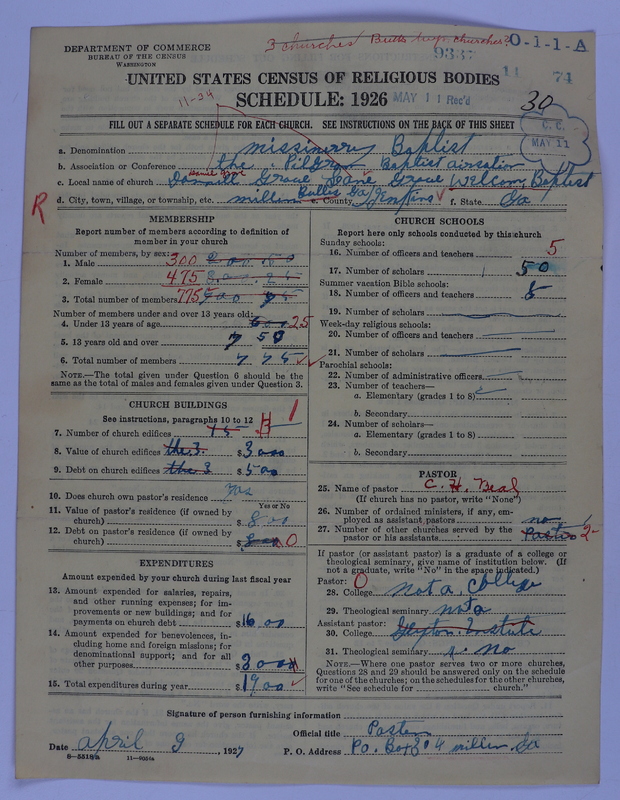 DEPARTMENT OF COMMERCE
BUREAU OF THE CENSUS
WASHINGTON
3 churches Butts two churches?
O-1-1-A
933
11 74
UNITED STATES CENSUS OF RELIGIOUS BODIES
11-24
SCHEDULE: 1926
MAY 11 Rec'd
30
FILL OUT A SEPARATE SCHEDULE FOR EACH CHURCH. SEE INSTRUCTIONS ON THE BACK OF THIS SHEET
C. C.
MAY 11
a. Denomination missinerry Baptist
b. Association or Conference the Pilgrom Baptist
c. Local name of church Grove Grove Welcom Baptist
R
d. City, town, village, or township, etc. millen Butts Ga County Jenkins f. State Ga
MEMBERSHIP
Report number of members according to definition of member in your church
Number of members, by sex:
1. Male 300
2. Female 475
3. Total number of members 775
Number of members under and over 13 years old:
4. Under 13 years of age 25
5. 13 years old and over 750
6. Total number of members 775
NOTE.—The total given under Question 6 should be the same as the total of males and females given under Question 3.
CHURCH BUILDINGS
See instructions, paragraphs 10 to 12
7. Number of church edifices 1
8. Value of church edifices the 3 $3000
9. Debt on church edifices the 3 $500
10. Does church own pastor's residence yas
Yes or No
11. Value of pastor's residence (if owned by church) $800
12. Debt on pastor's residence (if owned by church) $ 0
EXPENDITURES
Amount expended by your church during last fiscal year
13. Amount expended for salaries, repairs, and other running expenses; for improvements or new buildings; and for payments on church debt $1600
14. Amount expended for benevolences, including home and foreign missions; for denominational support; and for all other purposes $300
15. Total expenditures during year $1900
CHURCH SCHOOLS
Report here only schools conducted by this church
Sunday schools:
16. Number of officers and teachers 5
17. Number of scholars 50
Summer vacation Bible schools:
18. Number of officers and teachers 5
19. Number of scholars
Week-day religious schools:
20. Number of officers and teachers
21. Number of scholars
Parochial schools:
22. Number of administrative officers
23. Number of teachers—
a. Elementary (grades 1 to 8)
b. Secondary
24. Number of scholars—
a. Elementary (grades 1 to 8)
b. Secondary
PASTOR
25. Name of pastor C. H. Beal
(If church has no pastor, write "None")
26. Number of ordained ministers, if any, employed as assistant pastors no
27. Number of other churches served by the pastor or his assistants Pastro 2
If pastor (or assistant pastor) is a graduate of a college or theological seminary, give name of institution below. (If not a graduate, write "No" in the space indicated.)
Pastor: O
28. College not a College
29. Theological seminary nota
Assistant pastor:
30. College
31. Theological seminary no
NOTE.—Where one pastor serves two or more churches, Questions 28 and 29 should be answered only on the schedule for one of the churches; on the schedules for the other churches, write "See schedule for church."
Signature of person furnishing information
Official title Pastor
Date april 9, 1927
P. O. Address Po. Box 304 millen Ga
8—5518a 11—9051a